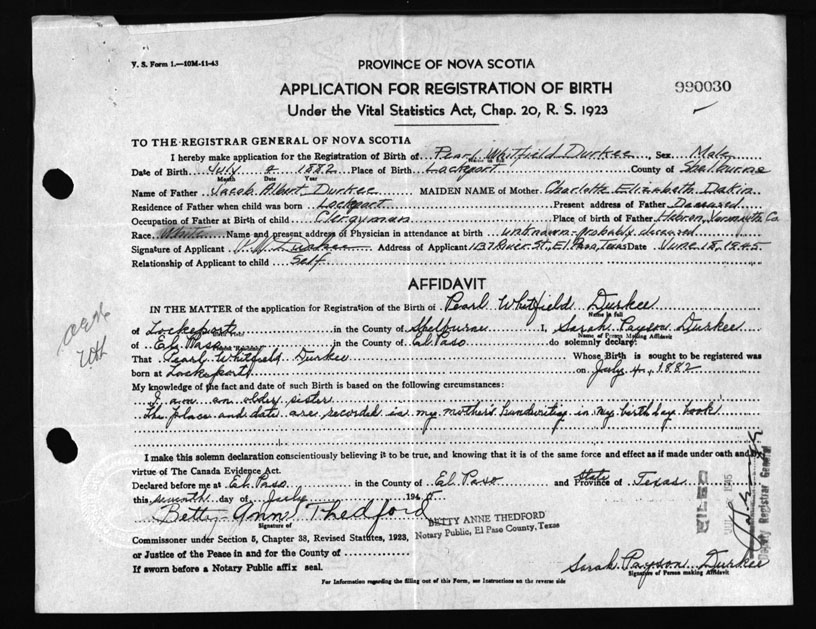 V. S. Form 1.—10M-11-43
PROVINCE OF NOVA SCOTIA
APPLICATION FOR REGISTRATION OF BIRTH
990030
Under the Vital Statistics Act, Chap. 20, R. S. 1923
TO THE REGISTRAR GENERAL OF NOVA SCOTIA
I hereby make application for the Registration of Birth of Pearl Whitfield Durkee, Sex Male
Date of Birth July 1882 Place of Birth Lockeport County of Shelburne
Month Date Year
Name of Father Jacob Albert Durkee MAIDEN NAME of Mother Charlotte Elizabeth Dakin
Residence of Father when child was born Lockeport Present address of Father Deceased
Occupation of Father at Birth of child Clergyman Place of birth of Father Hebron, Yarmouth Co.
Race White Name and present address of Physician in attendance at birth unknown - probably deceased
Signature of Applicant Durkee Address of Applicant St, El Paso, Texas Date June 18, 1945
Relationship of Applicant to child Self
AFFIDAVIT
IN THE MATTER of the application for Registration of the Birth of Pearl Whitfield Durkee
Name in full
of Lockeport in the County of Shelburne I, Sarah Payson Durkee
Name of Person Making Affidavit
of El Paso in the County of El Paso do solemnly declare:
That Pearl Whitfield Durkee Whose Birth is sought to be registered was
born at Lockeport on July 4, 1882
My knowledge of the fact and date of such Birth is based on the following circumstances:
I am an older sister
The place and date are recorded in my mother's handwriting in my birthday book
I make this solemn declaration conscientiously believing it to be true, and knowing that it is of the same force and effect as if made under oath and by
virtue of The Canada Evidence Act.
Declared before me at El Paso in the County of El Paso and State Province of Texas
this seventh day of July 1945
Betty Anne Thedford
Signature of
BETTY ANNE THEDFORD
Notary Public, El Paso County, Texas
Commissioner under Section 5, Chapter 38, Revised Statutes, 1923,
or Justice of the Peace in and for the County of
If sworn before a Notary Public affix seal.
FILED
Deputy Registrar General
Sarah Payson Durkee
Signature of Person making Affidavit
For Information regarding the filling out of this Form, see Instructions on the reverse side